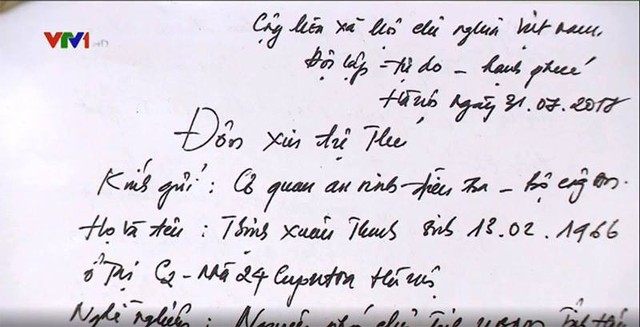 VTV1
Cộng hòa xã hội chủ nghĩa Việt nam
Độc lập - tự do - hạnh phúc
Hà nội ngày 31.07.2017
Đơn xin tự thú
Kính gửi: Cơ quan an ninh điều tra - bộ công an
Họ và tên: Trịnh Xuân Thanh sinh 13.02.1966
ở tại C2 - nhà 24 Hà nội
Nghề nghiệp: Nguyên phó chủ tịch